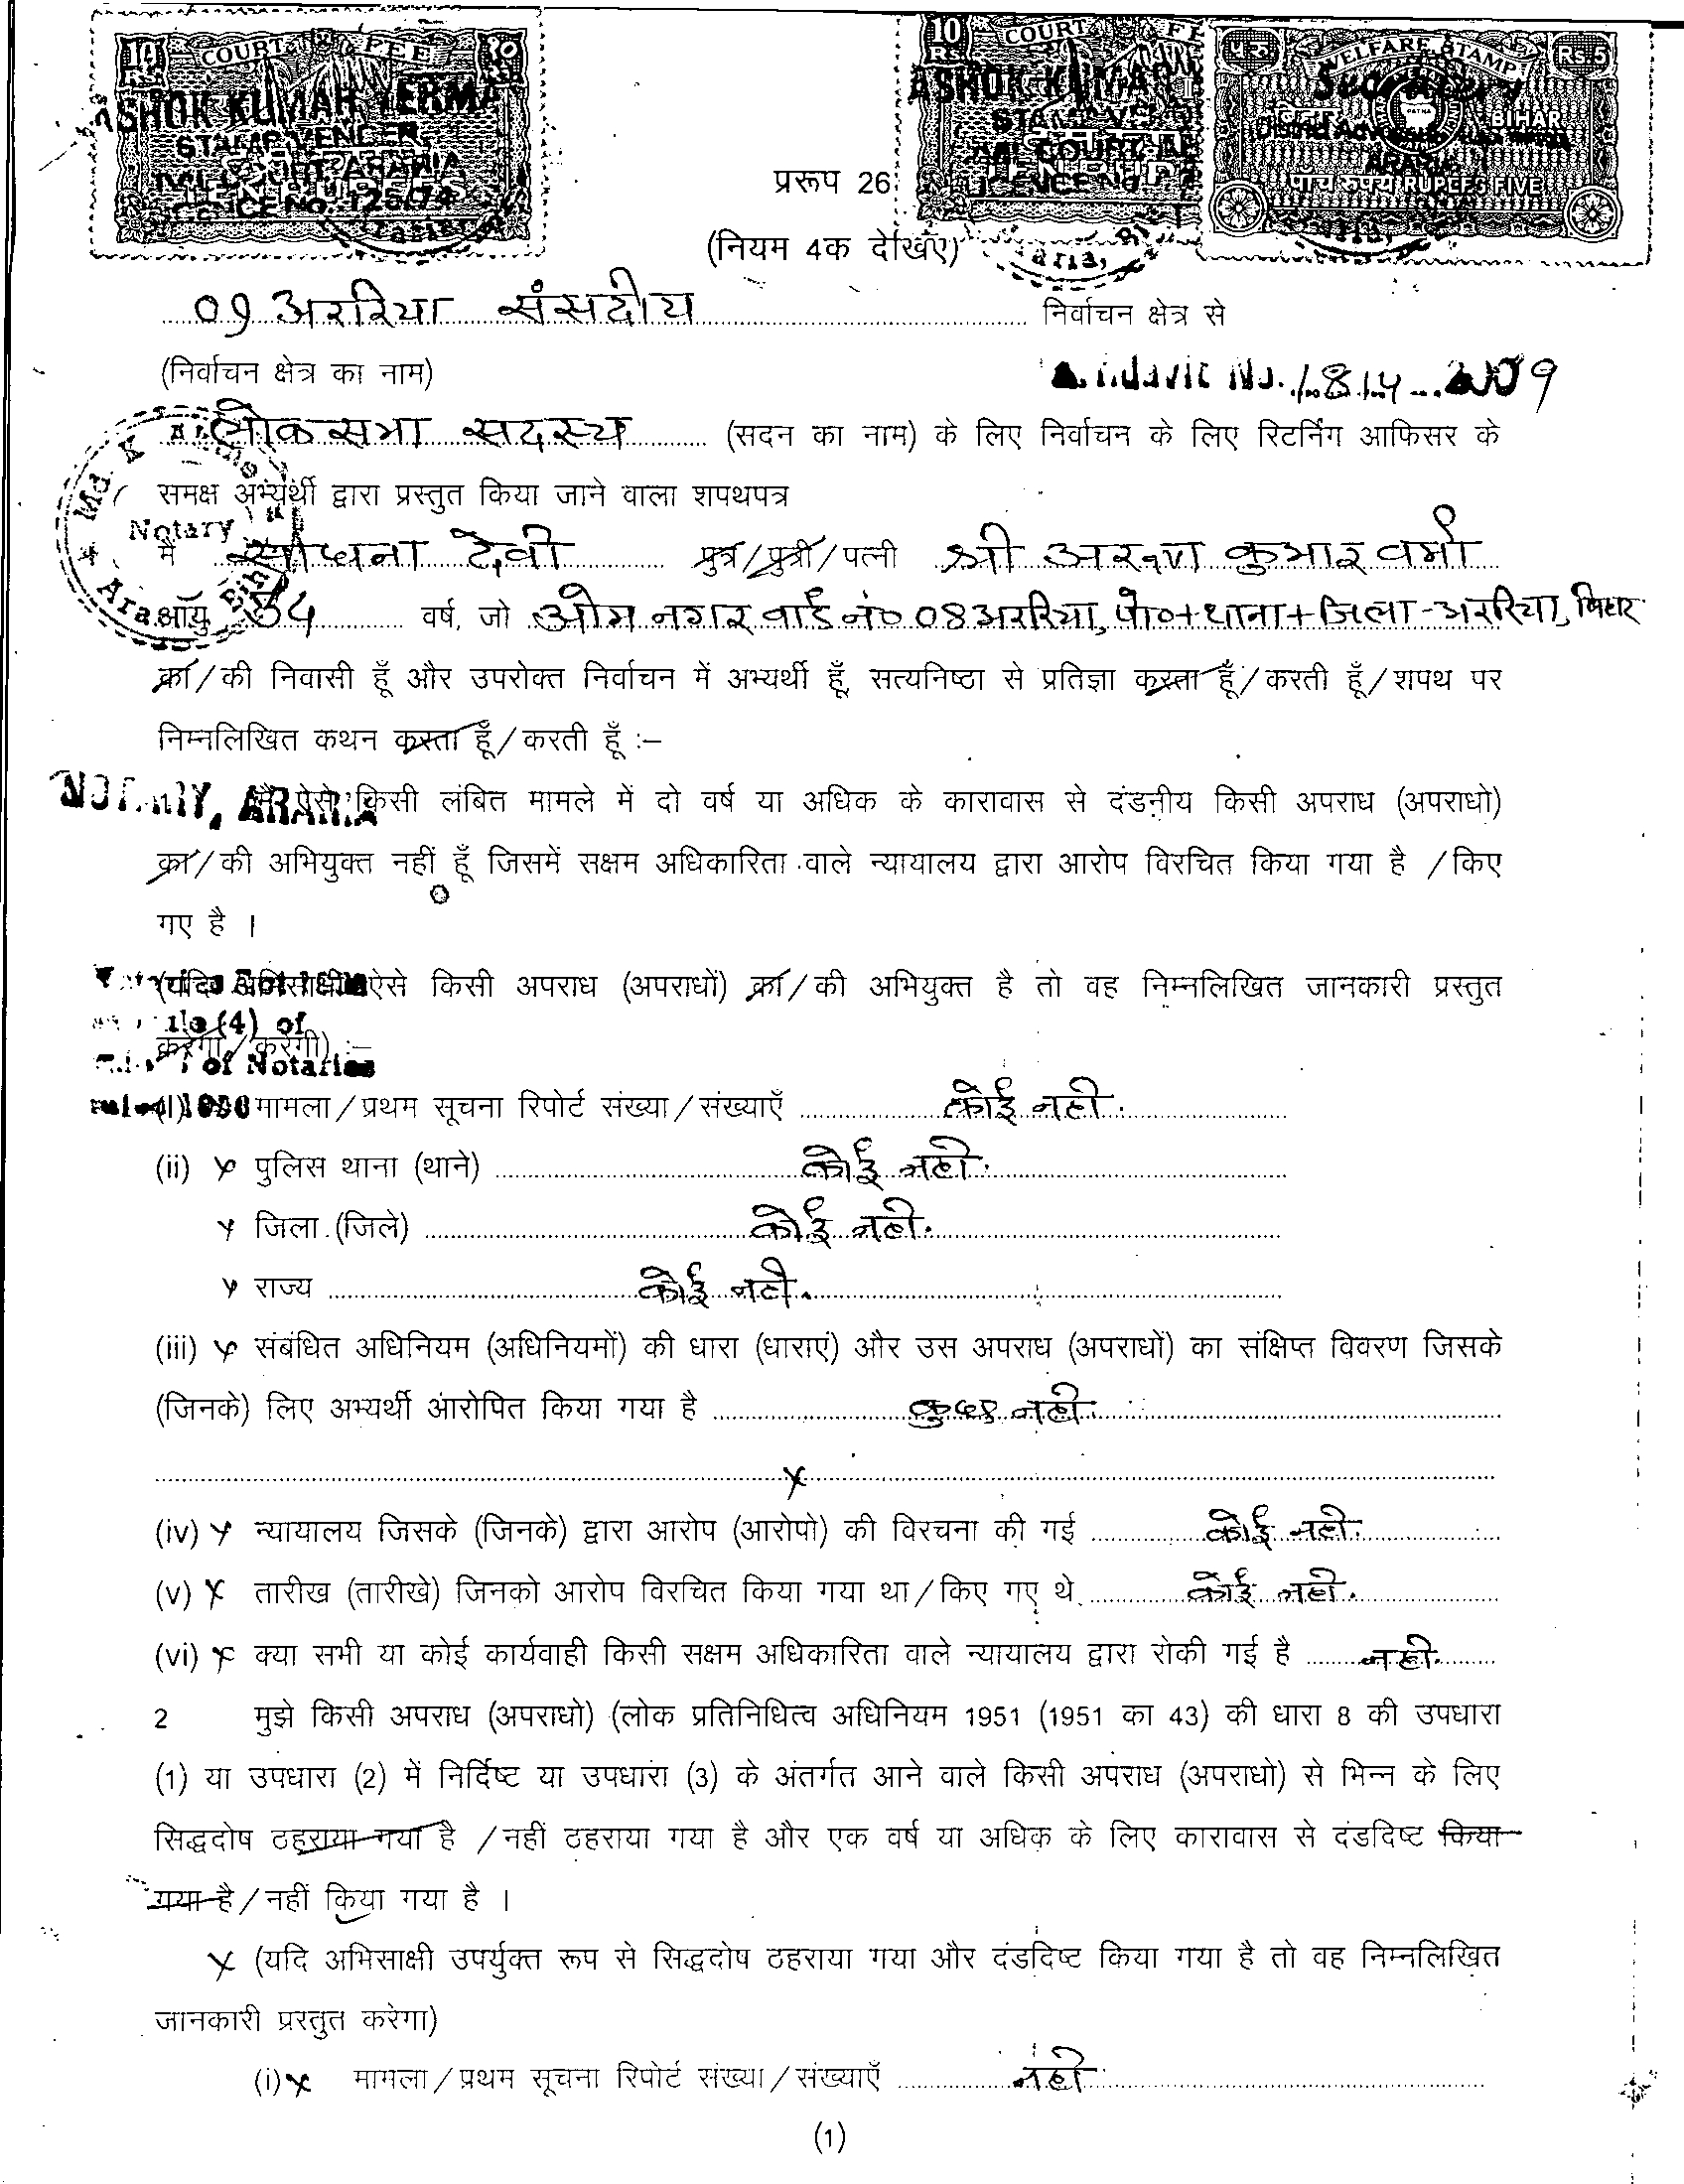 10 Rs. COURT FEE १०
ASHOK KUMAR VERMA
STAMP VENDER
CIVIL COURT ARARIA
LICENCE No. 125/74
10 Rs COURT FE
ASHOK KUMAR
STAMP VE
COURT A
LICENCE No.
५ रु WELFARE STAMP Rs 5
Secretary
बिहार BIHAR
District Advocate
ARARIA
पाँच रुपये RUPEES FIVE
प्ररूप 26
(नियम 4क देखिए)
09 अररिया संसदीय निर्वाचन क्षेत्र से
(निर्वाचन क्षेत्र का नाम)
Affidavit No. 1814 2009
लोक सभा सदस्य (सदन का नाम) के लिए निर्वाचन के लिए रिटर्निंग आफिसर के
समक्ष अभ्यर्थी द्वारा प्रस्तुत किया जाने वाला शपथपत्र
Md. K
Notary
Araria Bihar
मैं साधना देवी पुत्र/पुत्री/पत्नी श्री अरुण कुमार वर्मा
आयु 34 वर्ष, जो ओम नगर वार्ड नं० 08 अररिया, पो०+थाना+जिला-अररिया, बिहार
का/की निवासी हूँ और उपरोक्त निर्वाचन में अभ्यर्थी हूँ, सत्यनिष्ठा से प्रतिज्ञा करता हूँ/करती हूँ/शपथ पर
निम्नलिखित कथन करता हूँ/करती हूँ :–
NOTARY, ARARIA
मैं ऐसे किसी लंबित मामले में दो वर्ष या अधिक के कारावास से दंडनीय किसी अपराध (अपराधो)
का/की अभियुक्त नहीं हूँ जिसमें सक्षम अधिकारिता वाले न्यायालय द्वारा आरोप विरचित किया गया है /किए
गए है ।
(यदि अभिसाक्षी ऐसे किसी अपराध (अपराधों) का/की अभियुक्त है तो वह निम्नलिखित जानकारी प्रस्तुत
rule (4) of
करेगा/करेगी) :–
of Notaries
rules 1956
(i) मामला/प्रथम सूचना रिपोर्ट संख्या/संख्याएँ कोई नही.
(ii) x पुलिस थाना (थाने) कोई नही.
x जिला (जिले) कोई नही.
x राज्य कोई नही.
(iii) x संबंधित अधिनियम (अधिनियमों) की धारा (धाराएं) और उस अपराध (अपराधों) का संक्षिप्त विवरण जिसके
(जिनके) लिए अभ्यर्थी आरोपित किया गया है कुछ नही.
x
(iv) x न्यायालय जिसके (जिनके) द्वारा आरोप (आरोपो) की विरचना की गई कोई नही.
(v) x तारीख (तारीखे) जिनको आरोप विरचित किया गया था/किए गए थे कोई नही.
(vi) x क्या सभी या कोई कार्यवाही किसी सक्षम अधिकारिता वाले न्यायालय द्वारा रोकी गई है नही.
2 मुझे किसी अपराध (अपराधो) (लोक प्रतिनिधित्व अधिनियम 1951 (1951 का 43) की धारा 8 की उपधारा
(1) या उपधारा (2) में निर्दिष्ट या उपधारा (3) के अंतर्गत आने वाले किसी अपराध (अपराधो) से भिन्न के लिए
सिद्धदोष ठहराया गया है /नहीं ठहराया गया है और एक वर्ष या अधिक के लिए कारावास से दंडदिष्ट किया
गया है/नहीं किया गया है ।
x (यदि अभिसाक्षी उपर्युक्त रूप से सिद्धदोष ठहराया गया और दंडदिष्ट किया गया है तो वह निम्नलिखित
जानकारी प्रस्तुत करेगा)
(i) x मामला/प्रथम सूचना रिपोर्ट संख्या/संख्याएँ नही
(1)